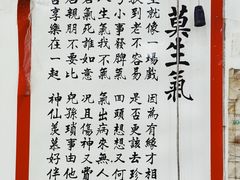 莫生氣
生就像一場戲　因為有緣才相
扶到老不容易　是否更該去珍
了小事發脾氣　回頭想想又何
人生氣我不氣　氣出病來無人
若氣死誰如意　況且傷神又費
居親朋不要比　兒孫瑣事由他
苦享樂在一起　神仙羨慕好伴